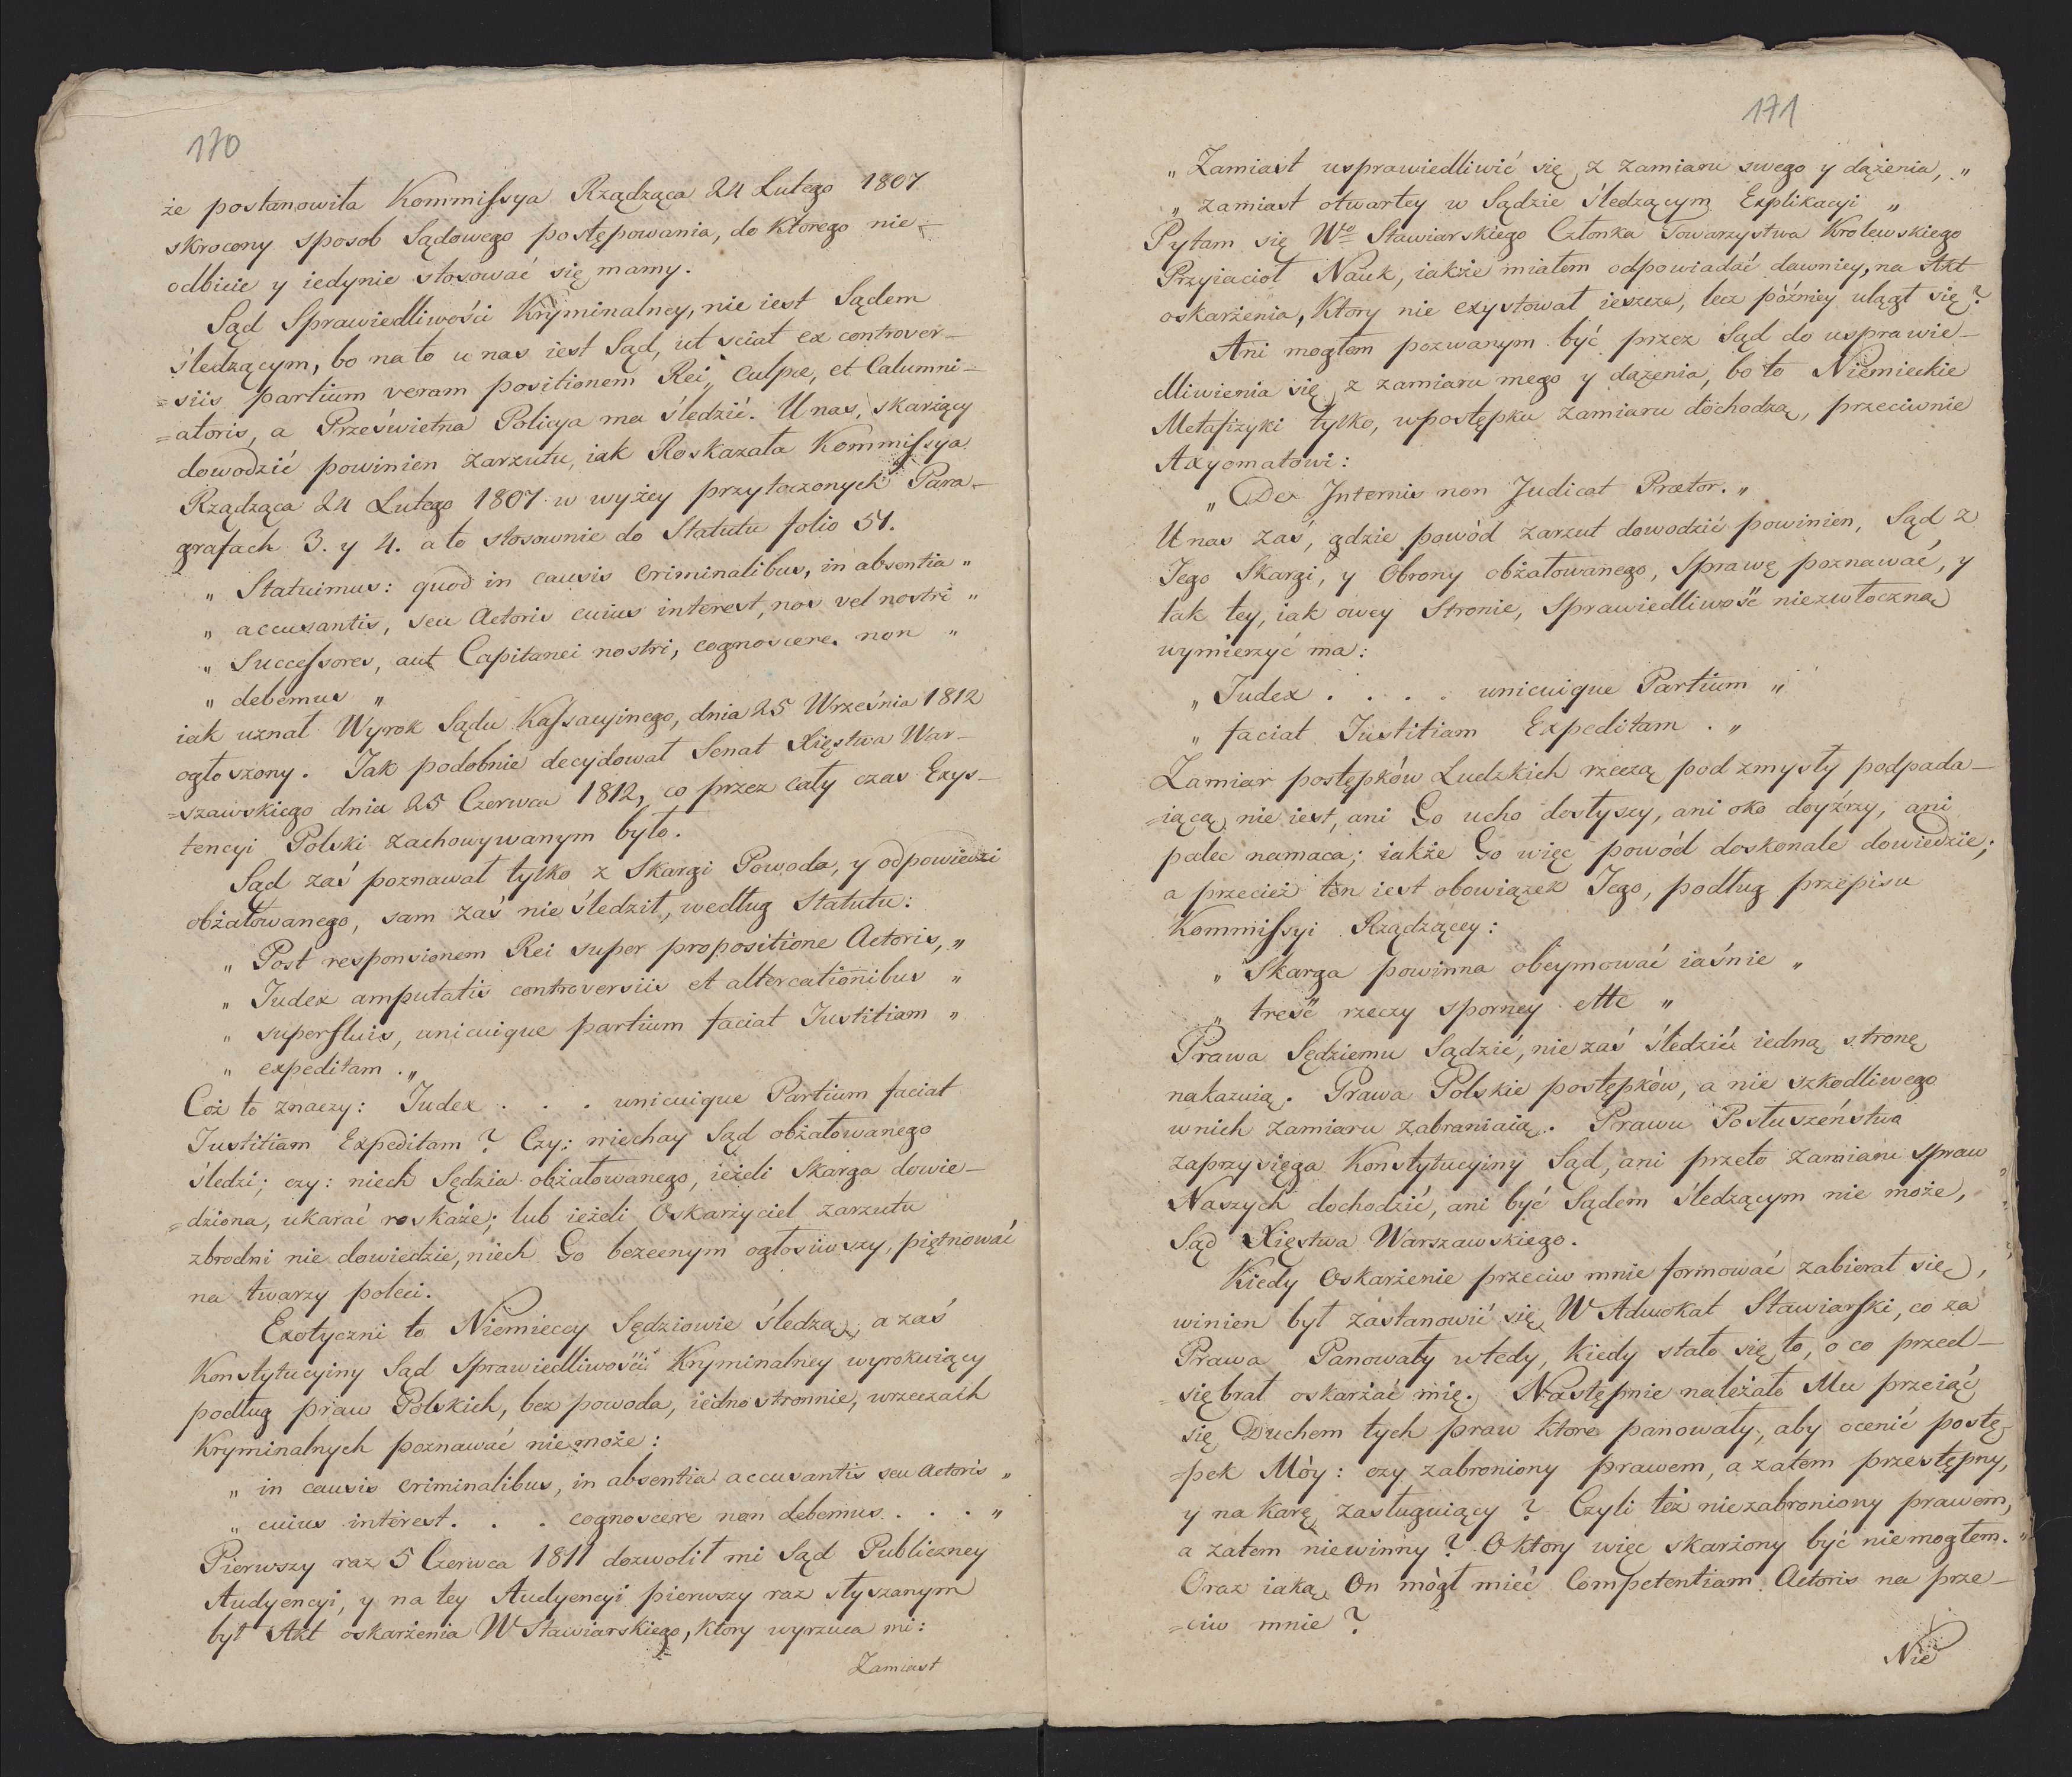 170
że postanowiła Kommissya Rządząca 24 Lutego 1807
skrocony sposob Sądowego postępowania, do ktorego nie=
odbicie y iedynie stosować się mamy.
Sąd Sprawiedliwości Kryminalney, nie iest Sądem
śledzącym, bo na to u nas iest Sąd, ut sciat ex controver-
=siis partium veram positionem Rei, Culpæ, et Calumni-
=atoris, a Prześwietna Policya ma śledzić. U nas, skarżący
dowodzić powinien zarzutu, iak Roskazała Kommissya
Rządząca 24 Lutego 1807 w wyżey przytoczonych Para-
grafach 3. y 4. a to stosownie do Statutu folio 51.
„ Statuimus: quod in causis Criminalibus, in absentia „
„ accusantis, seu Actoris cuius interest, nos vel nostri „
„ Successores, aut Capitanei nostri, cognoscere non „
„ debemus „
iak uznał Wyrok Sądu Kassacyinego, dnia 25 Września 1812
ogłoszony. Jak podobnie decydował Senat Xięstwa War-
=szawskiego dnia 25 Czerwca 1812, co przez cały czas Exys-
tencyi Polski zachowywanym było.
Sąd zaś poznawał tylko z Skargi Powoda, y odpowiedzi
obżałowanego, sam zaś nie śledził, według Statutu:
„ Post responsionem Rei super propositione Actoris, „
„ Iudex amputatis controversiis et altercationibus „
„ superfluis, unicuique partium faciat Iustitiam „
„ expeditam. „
Coż to znaczy: Iudex . . . unicuique Partium faciat
Iustitiam Expeditam? Czy: niechay Sąd obżałowanego
śledzi; czy: niech Sędzia obżałowanego, ieżeli Skarga dowie-
=dziona, ukarać roskaże; lub ieżeli Oskarżyciel zarzutu
zbrodni nie dowiedzie, niech Go bezecnym ogłosiwszy, piętnować
na twarzy poleci.
Exotyczni to Niemieccy Sędziowie śledzą, a zaś
Konstytucyiny Sąd Sprawiedliwości Kryminalney wyrokuiący
podług praw Polskich, bez powoda, iednostronnie, w rzeczach
Kryminalnych poznawać nie może:
„ in causis Criminalibus, in absentia accusantis seu Actoris „
„ cuius interest . . . cognoscere non debemus . . . „
Pierwszy raz 5 Czerwca 1811 dozwolił mi Sąd Publiczney
Audyencyi, y na tey Audyencyi pierwszy raz słyszanym
był Akt oskarżenia W Stawiarskiego, ktory wyrzuca mi:
Zamiast
171
„ Zamiast usprawiedliwić się z zamiaru swego y dążenia, „
„ zamiast otwartey w Sądzie śledzącym Explikacyi „
Pytam się Wo Stawiarskiego Członka Towarzystwa Krolewskiego
Przyiacioł Nauk, iakże miałem odpowiadać dawniey, na Akt
oskarżenia, ktory nie exystował ieszcze, lecz późniey ulągł się?
Ani mogłem pozwanym być przez Sąd do usprawie-
dliwienia się z zamiaru mego y dążenia, bo to Niemieckie
Metafizyki tylko, w postępku zamiaru dochodzą, przeciwnie
Axyomatowi:
„ De Internis non Judicat Prætor. „
U nas zaś, gdzie powód zarzut dowodzić powinien, Sąd z
Jego Skargi, y Obrony obżałowanego, Sprawę poznawać, y
tak tey, iak owey Stronie, Sprawiedliwość niezwłoczną
wymierzyć ma:
„ Iudex . . . . unicuique Partium „
„ faciat Iustitiam Expeditam. „
Zamiar postępków Ludzkich rzeczą pod zmysły podpada-
=iącą nie iest, ani Go ucho dosłyszy, ani oko doyźrzy, ani
palec namaca; iakże Go więc powód doskonale dowiedzie;
a przecież ten iest obowiązek Jego, podług przepisu
Kommissyi Rządzącey:
„ Skarga powinna obeymować iaśnie „
„ treść rzeczy sporney ettc „
Prawa Sędziemu Sądzić, nie zaś śledzić iedną stronę
nakazuią. Prawa Polskie postępków, a nie szkodliwego
w nich zamiaru zabraniaią. Prawu Posłuszeństwa
zaprzysięga Konstytucyiny Sąd, ani przeto zamiaru spraw
Naszych dochodzić, ani być Sądem śledzącym nie może,
Sąd Xięstwa Warszawskiego.
Kiedy Oskarżenie przeciw mnie formować zabierał się,
winien był zastanowić się W Adwokat Stawiarski, co za
Prawa Panowały wtedy, kiedy stało się to, o co przed-
=się brał oskarżać mię. Następnie należało Mu przeiąć
się Duchem tych praw ktore panowały, aby ocenić postę-
=pek Móy: czy zabroniony prawem, a zatem przestępny,
y na karę zasługuiący? Czyli też niezabroniony prawem,
a zatem niewinny? O ktory więc skarżony być niemogłem.
Oraz iaką On mógł mieć Competentiam Actoris na prze-
=ciw mnie?
Nie